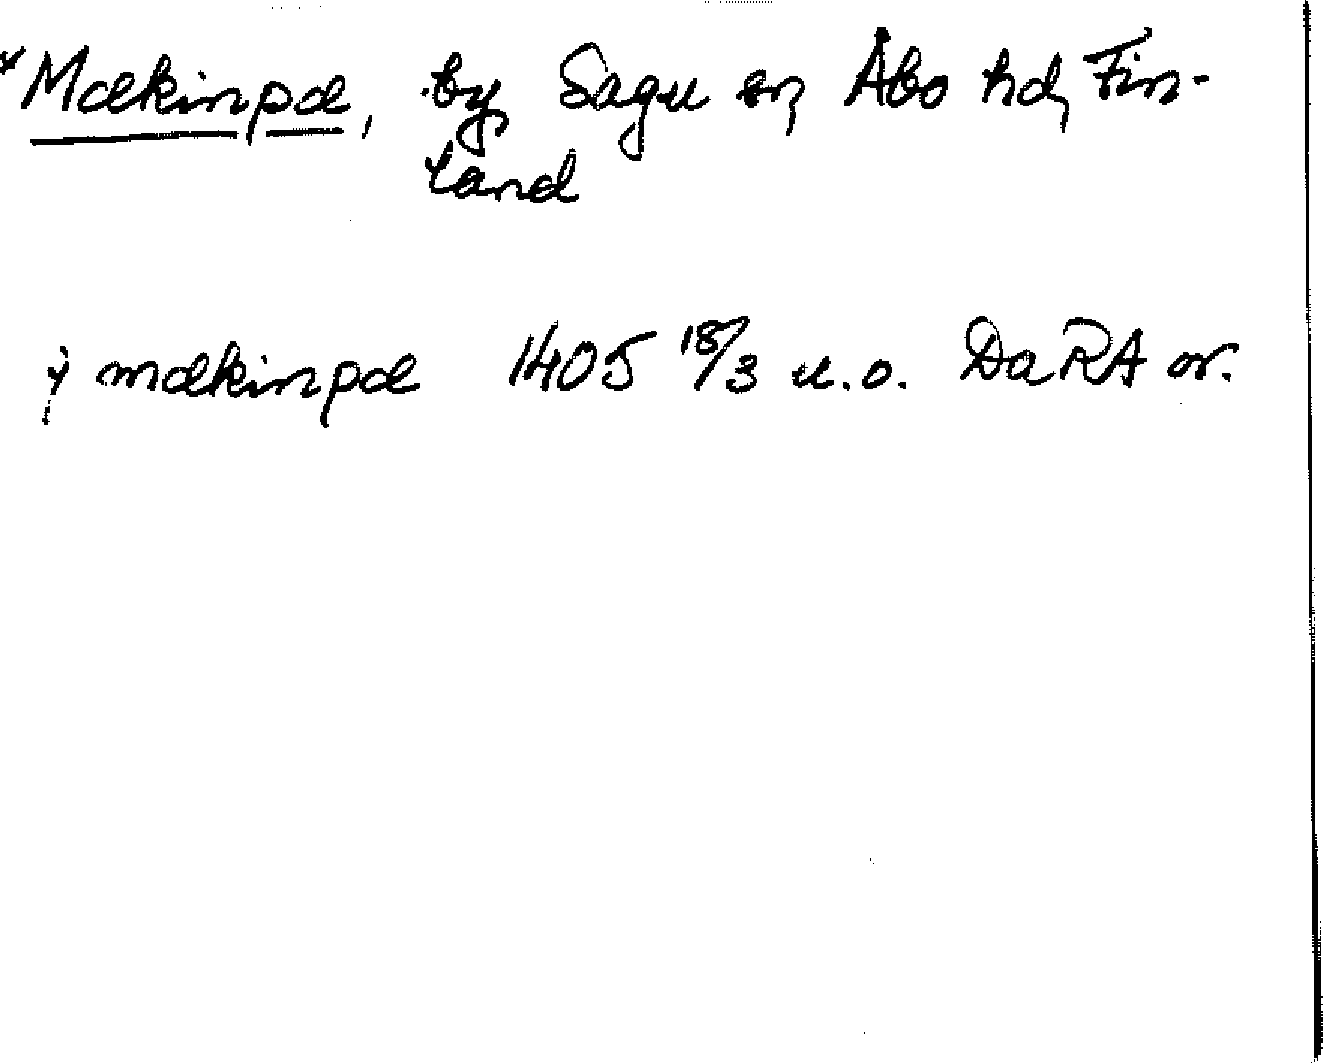 *Mækinpæ, by Sagu sn, Åbo hd, Fin-
land
j mækinpæ 1405 18/3 u.o. DaRA or.